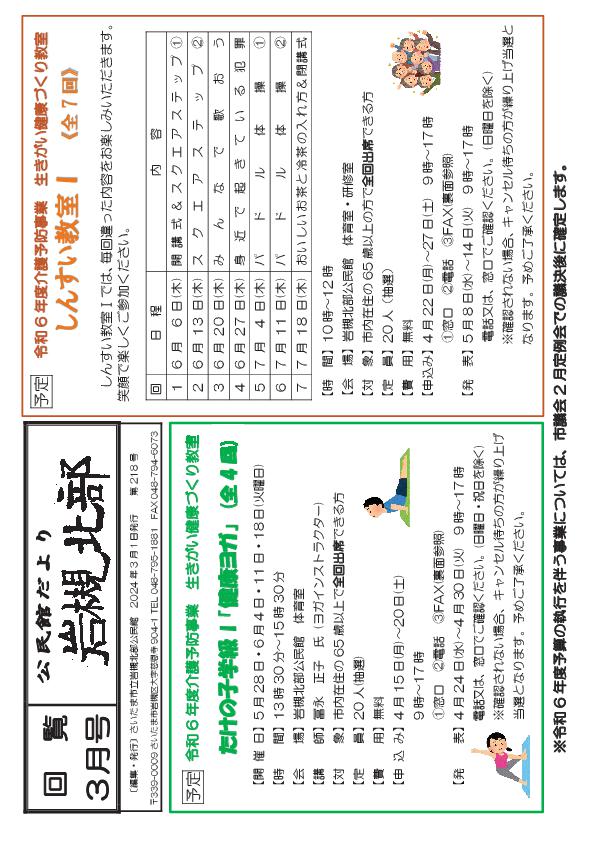 回覧
3月号
公民館だより
岩槻北部
〔編集・発行〕さいたま市立岩槻北部公民館　2024年3月1日発行　第218号
〒339-0009 さいたま市岩槻区大字慈恩寺904-1 TEL 048-795-1881　FAX 048-794-6073
予定
令和6年度介護予防事業　生きがい健康づくり教室
たけの子学級Ⅰ「健康ヨガ」（全4回）
【開催日】5月28日・6月4日・11日・18日(火曜日)
【時　間】13時30分～15時30分
【会　場】岩槻北部公民館　体育室
【講　師】冨永　正子　氏（ヨガインストラクター）
【対　象】市内在住の65歳以上で全回出席できる方
【定　員】20人（抽選）
【費　用】無料
【申込み】4月15日(月)～20日(土)
9時～17時
①窓口　②電話　③FAX(裏面参照)
【発　表】4月24日(水)～4月30日(火)　9時～17時
電話又は、窓口でご確認ください。（日曜日・祝日を除く）
※確認されない場合、キャンセル待ちの方が繰り上げ
当選となります。予めご了承ください。
予定
令和6年度介護予防事業　生きがい健康づくり教室
しんすい教室Ⅰ　《全7回》
しんすい教室Ⅰでは、毎回違った内容をお楽しみいただきます。
笑顔で楽しくご参加ください。
回　日程　内容
1　6月6日(木)　開講式＆スクエアステップ①
2　6月13日(木)　スクエアステップ②
3　6月20日(木)　みんなで歌おう
4　6月27日(木)　身近で起きている犯罪
5　7月4日(木)　パドル体操①
6　7月11日(木)　パドル体操②
7　7月18日(木)　おいしいお茶と冷茶の入れ方＆閉講式
【時　間】10時～12時
【会　場】岩槻北部公民館　体育室・研修室
【対　象】市内在住の65歳以上の方で全回出席できる方
【定　員】20人（抽選）
【費　用】無料
【申込み】4月22日(月)～27日(土)　9時～17時
①窓口　②電話　③FAX(裏面参照)
【発　表】5月8日(水)～14日(火)　9時～17時
電話又は、窓口でご確認ください。（日曜日を除く）
※確認されない場合、キャンセル待ちの方が繰り上げ当選と
なります。予めご了承ください。
※令和6年度予算の執行を伴う事業については、市議会2月定例会での議決後に確定します。